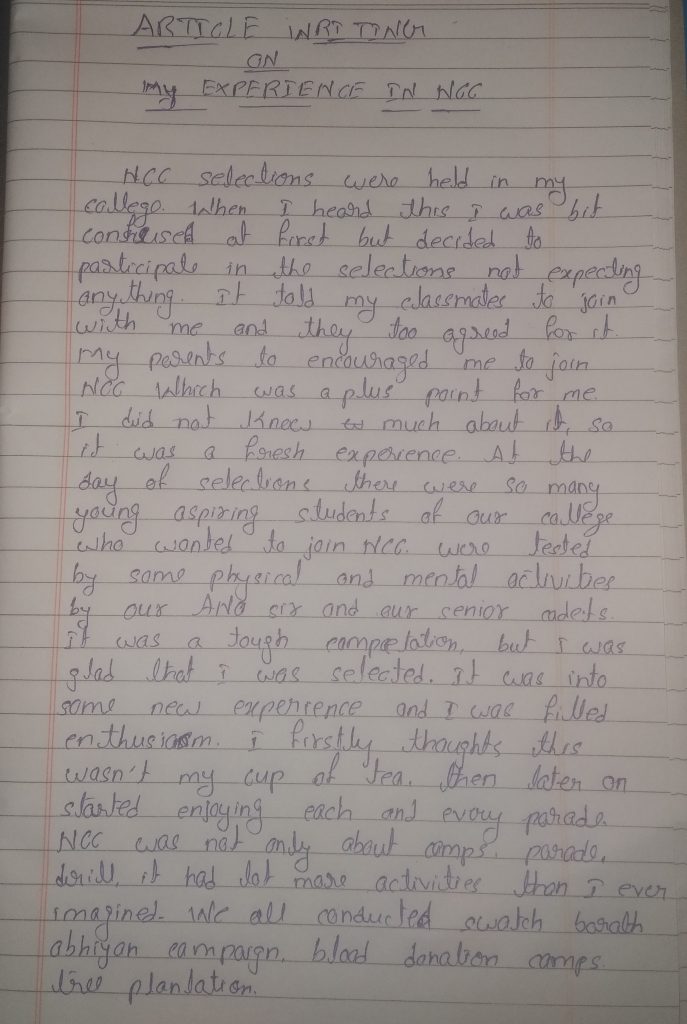 ARTICLE WRITTING
ON
My EXPERIENCE IN NCC
NCC selections were held in my
college. When I heard this I was bit
confused at first but decided to
participate in the selections not expecting
anything. It told my classmates to join
with me and they too agreed for it.
My parents to encouraged me to join
NCC Which was a plus point for me.
I did not knew much about it, so
it was a fresh experience. At the
day of selections there were so many
young aspiring students of our college
who wanted to join NCC. were tested
by some physical and mental activities
by our ANO sir and our senior cadets.
It was a tough competation, but I was
glad that I was selected. It was into
some new experience and I was filled
enthusiasm. I firstly thoughts this
wasn't my cup of tea. then later on
started enjoying each and every parade.
NCC was not only about camps, parade,
drill, it had lot more activities than I ever
imagined. We all conducted swatch barath
abhiyan campaign, blood donation camps
tree plantation.